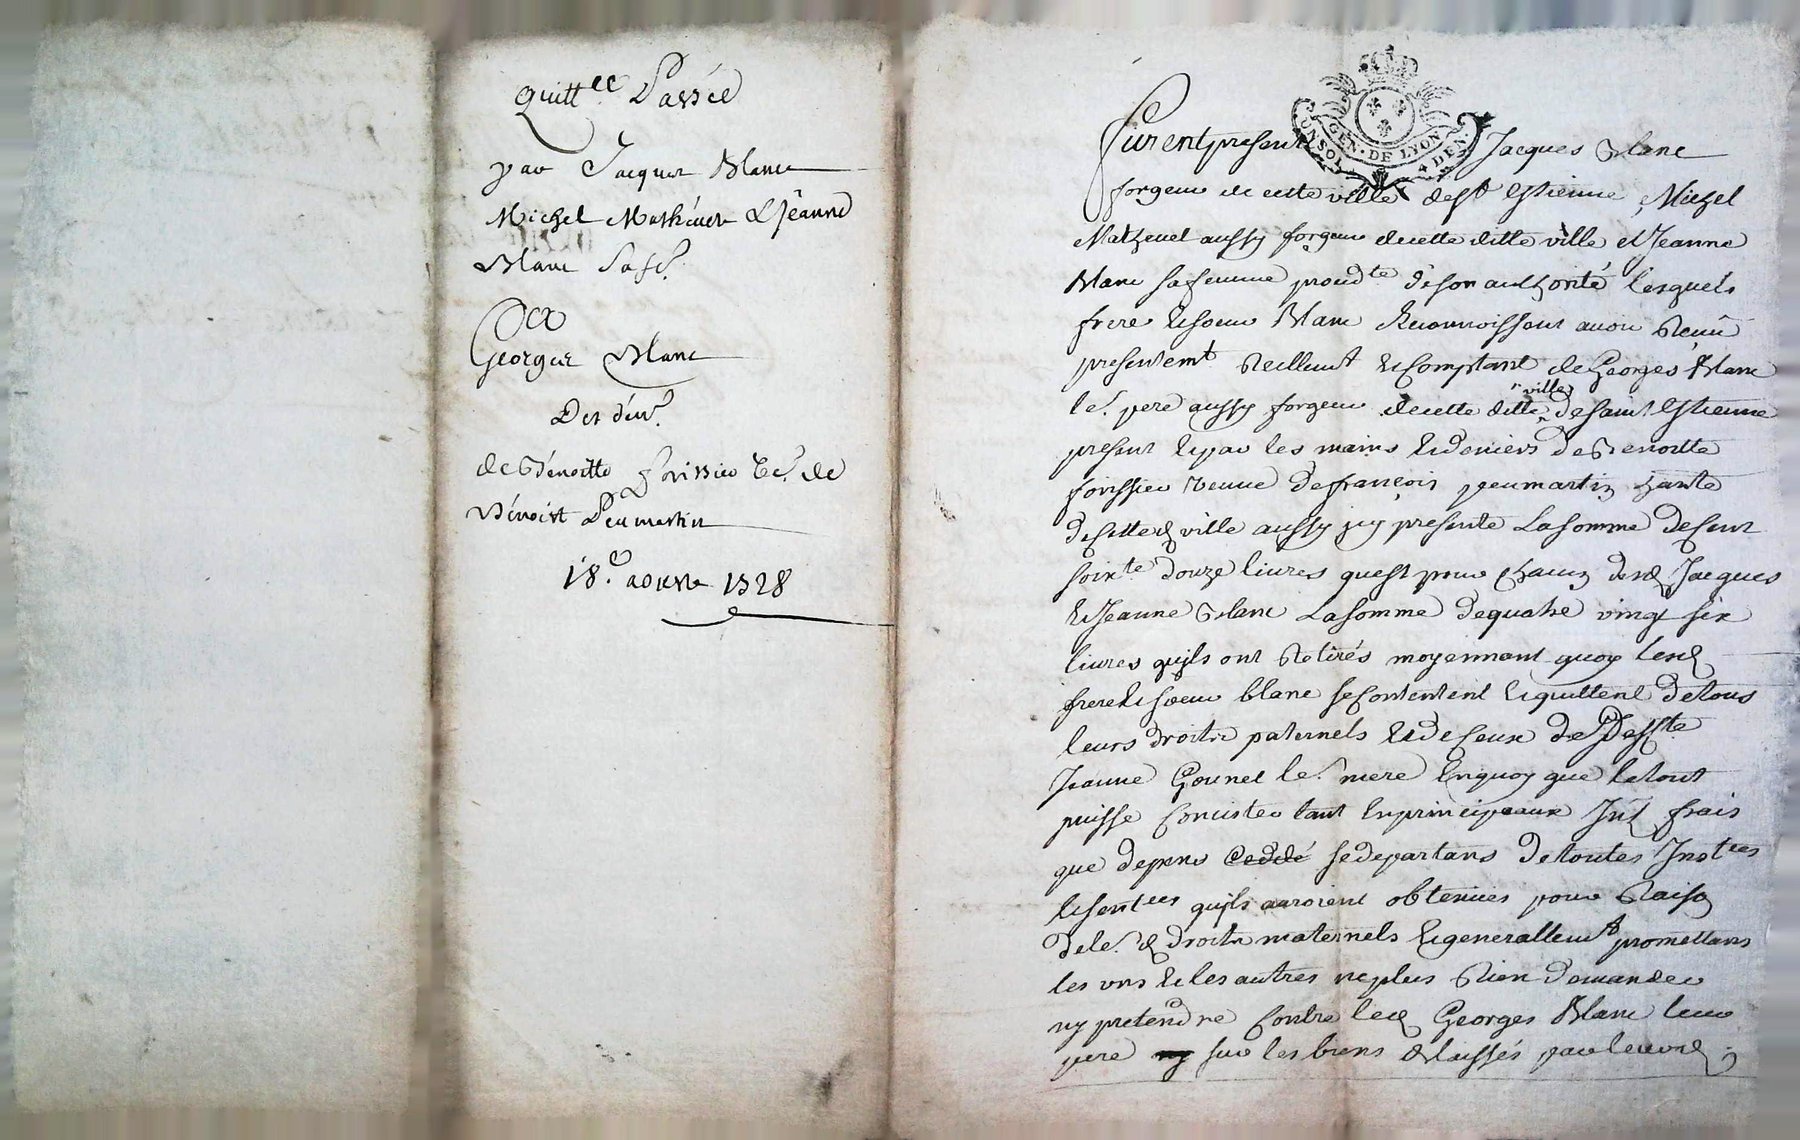 Quitt.ce Passéé
par Jacques Blanc
Michel Matheuet & Jeanne
Blanc Sa fe.
A
Georges Blanc
Des den.
de Benoitte forissier Ve. de
Benoist Peumartin
18.e aoust 1728
UN SOL
GEN. DE LYON
4 DEN.
Furent presents Jacques Blanc
forgeur de cette ville de st Estienne, Michel
Matheuet aussy forgeur de cette ditte ville et Jeanne
Blanc sa femme proced.te de son authorité lesquels
frere & soeur Blanc Reconnoissent avoir Receu
presentemt Reellemt & Comptant de Georges Blanc
le.r pere aussy forgeur de cette ditte ville de saint Estienne
present & par les mains & deniers de Benoitte
forissier veuve de françois peumartin hante
de cette d ville aussy jcy presente La somme de Cent
soix.te douze livres quest pour chacun desd Jacques
& Jeanne Blanc La somme de quatre vingt six
livres quils ont Retirés moyennant quoy lesd
frere & soeur blanc se Contentent & quittent de tous
leurs droits paternels & de Ceux de Deff.te
Jeanne Gounet le.r mere En quoy que le tout
puisse Concister tant En principeaux Int frais
que depens cedde se departans de toutes Inst.ces
& sent.ces quils auroient obtenues pour Raison
de le.r d droits maternels & generallemt promettans
les uns & les autres ne plus Rien demander
ny pretendre Contre led Georges Blanc leur
pere ny sur les biens delaissés par leurd.